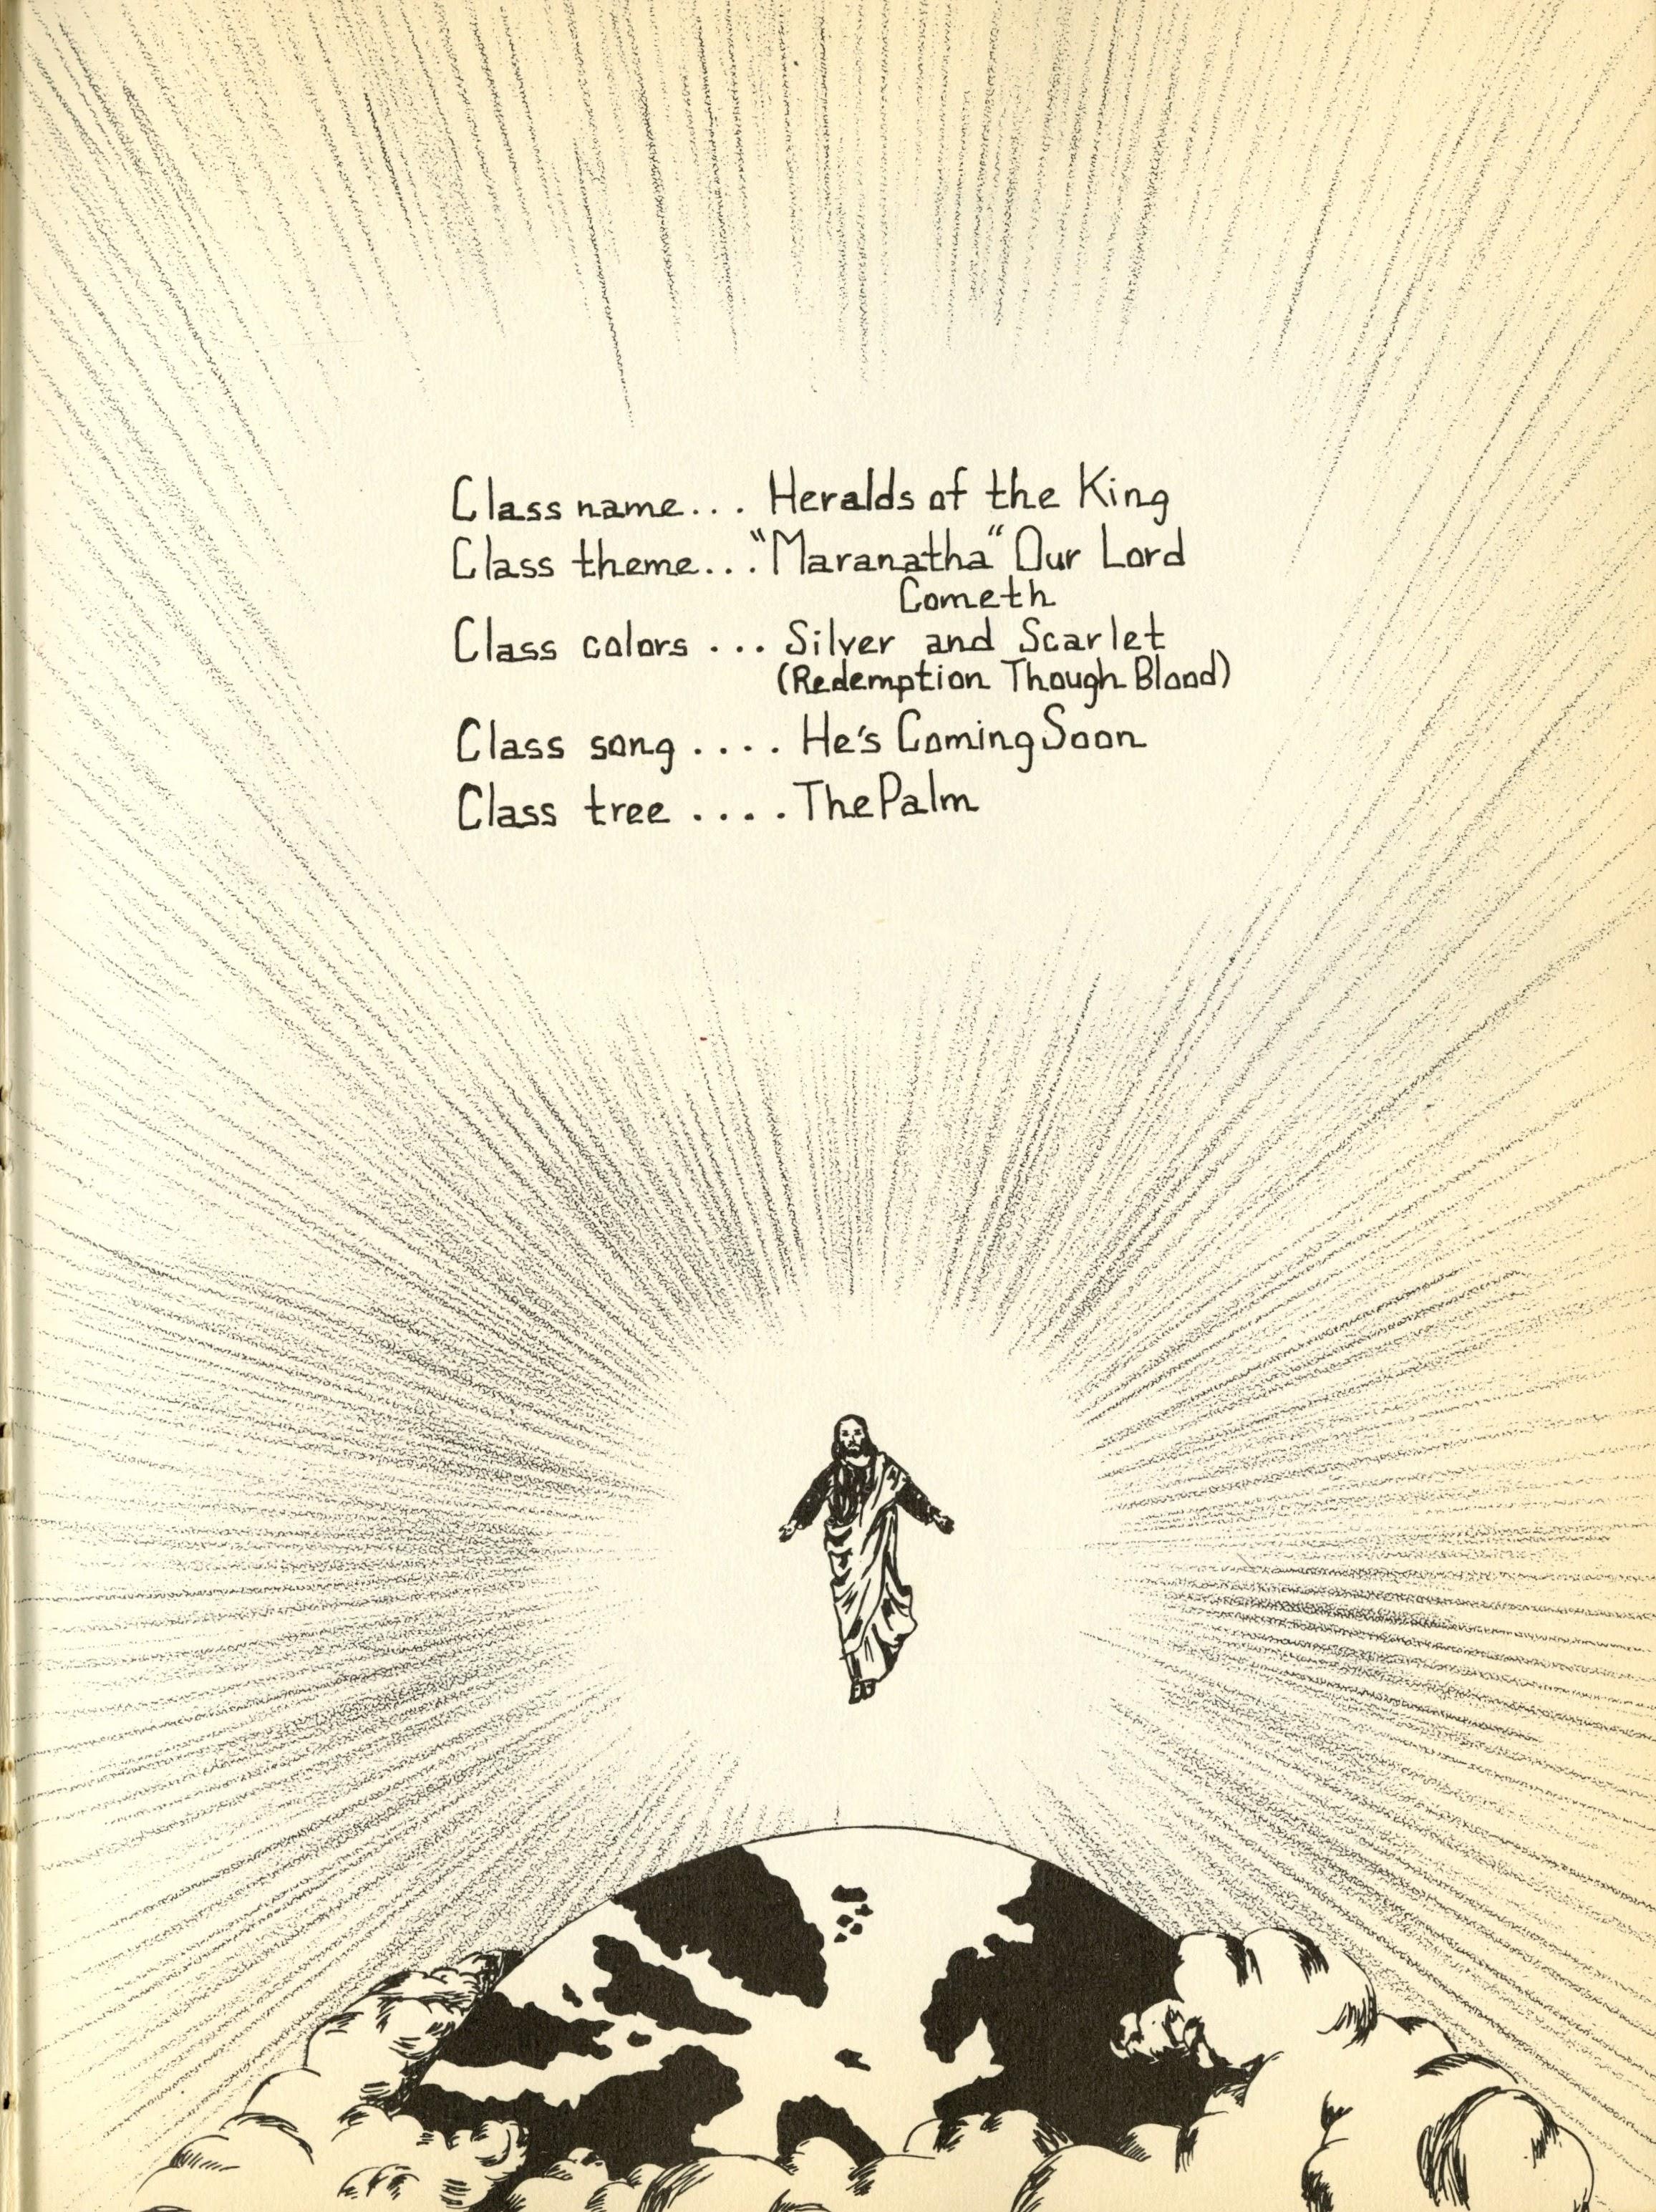 Class name... Heralds of the King
Class theme... "Maranatha" Our Lord
Cometh
Class colors ... Silver and Scarlet
(Redemption Though Blood)
Class song .... He's Coming Soon
Class tree ..... The Palm